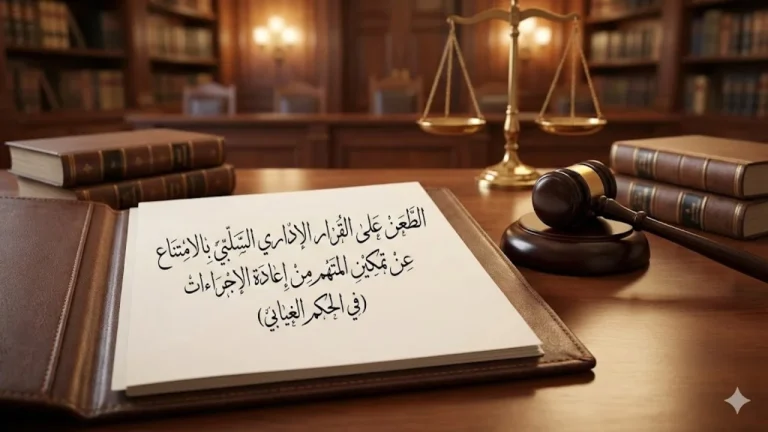 الطَّعَنْ عَلى القَُرار الإدْاري السَّلّبْيْ بِالامْتِناع
عِنْ تمَكِيْنِ المتَهم مِنْ إعَادَة الإجْراءاتْ
(في الحكم الغِيابيْ)